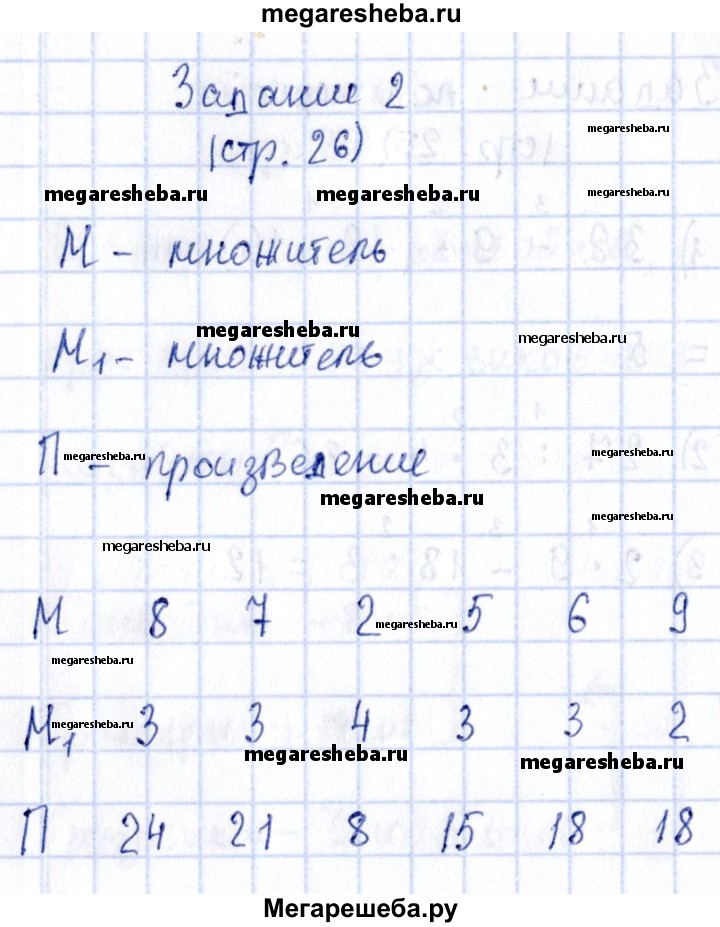 megaresheba.ru
Задание 2
megaresheba.ru
(стр. 26)
megaresheba.ru megaresheba.ru megaresheba.ru
М - множитель
megaresheba.ru megaresheba.ru
М1 - множитель
П - произведение
megaresheba.ru megaresheba.ru
megaresheba.ru
megaresheba.ru
megaresheba.ru
М 8 7 2 5 6 9
megaresheba.ru
megaresheba.ru
М1 3 3 4 3 3 2
megaresheba.ru
megaresheba.ru megaresheba.ru
П 24 21 8 15 18 18
Мегарешеба.ру